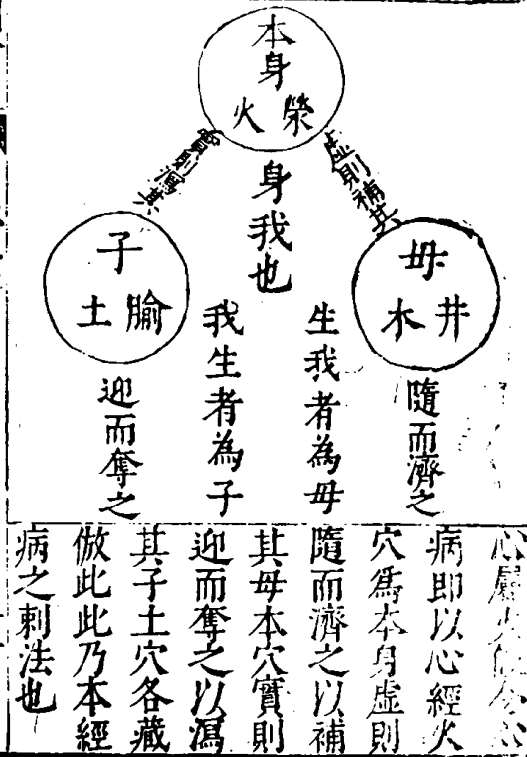 本身
榮火
虛則補其
實則瀉其
母
井木
子
腧土
身我也
隨而濟之
生我者為母
我生者為子
迎而奪之
心屬火
病即以心經火
穴爲本身虛則
隨而濟之以補
其母木穴實則
迎而奪之以瀉
其子土穴各藏
倣此此乃本經
病之刺法也